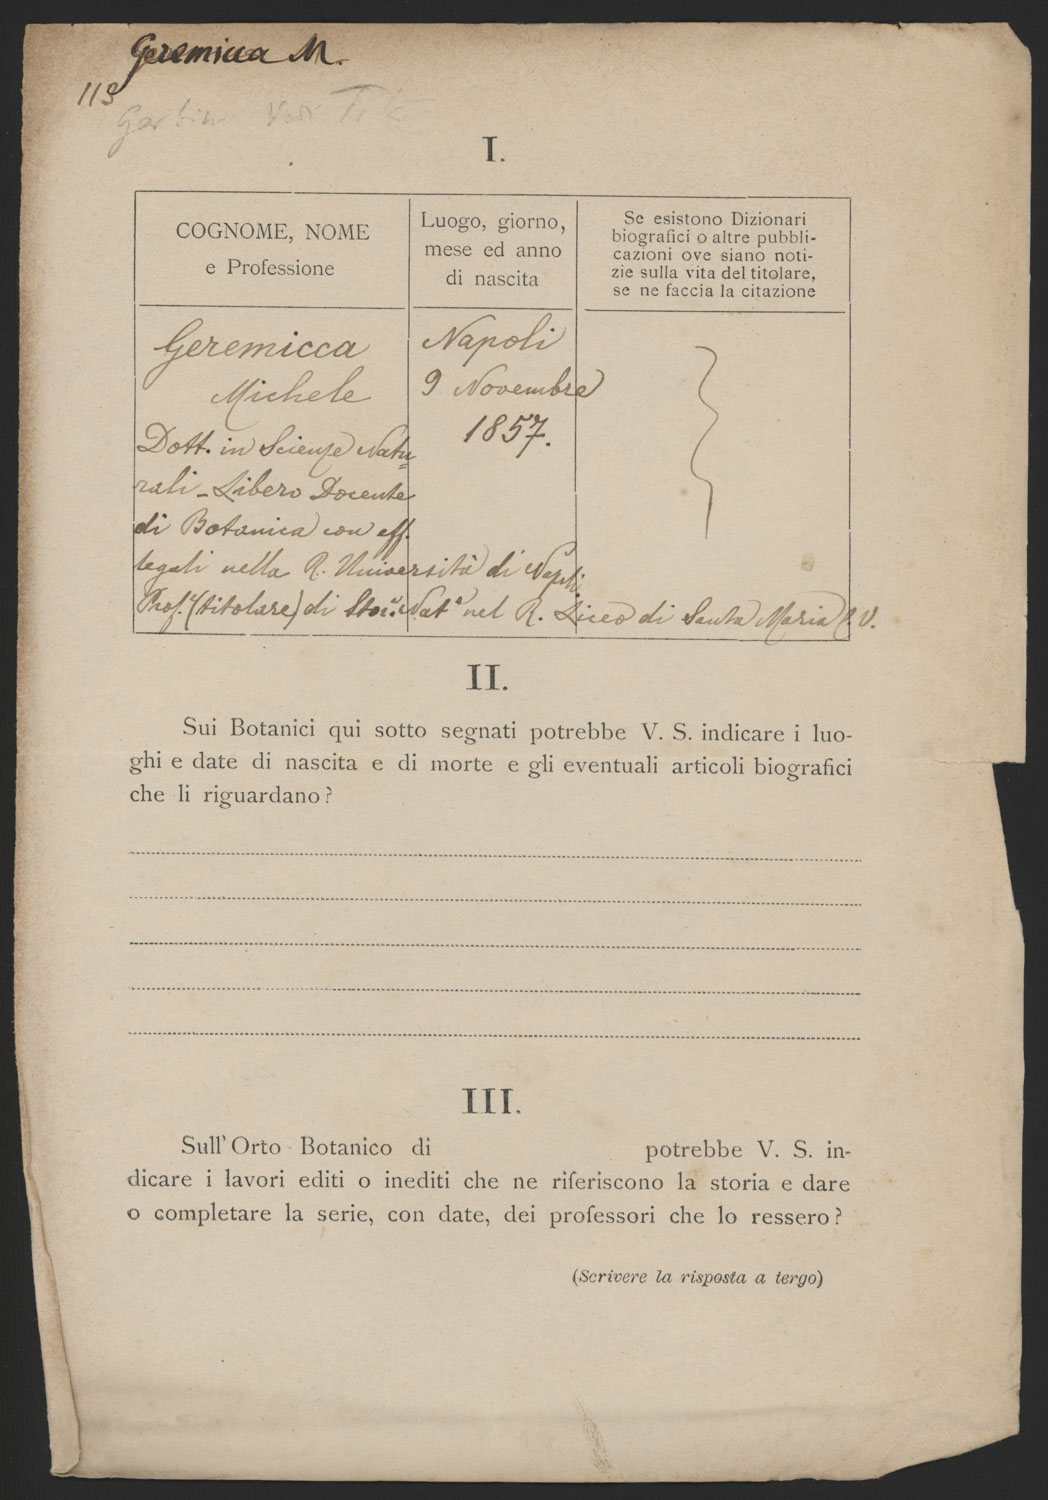 Geremicca M.
113
I.
COGNOME, NOME
e Professione
Luogo, giorno,
mese ed anno
di nascita
Se esistono Dizionari
biografici o altre pubbli-
cazioni ove siano noti-
zie sulla vita del titolare,
se ne faccia la citazione
Geremicca
Michele
Dott. in Scienze Natu-
rali - Libero Docente
di Botanica con eff.
legali nella R. Università di Napoli
Prof. (titolare) di Stor. Nat. nel R. Liceo di Santa Maria C. V.
Napoli
9 Novembre
1857.
II.
Sui Botanici qui sotto segnati potrebbe V. S. indicare i luo-
ghi e date di nascita e di morte e gli eventuali articoli biografici
che li riguardano?
III.
Sull' Orto Botanico di potrebbe V. S. in-
dicare i lavori editi o inediti che ne riferiscono la storia e dare
o completare la serie, con date, dei professori che lo ressero?
(Scrivere la risposta a tergo)